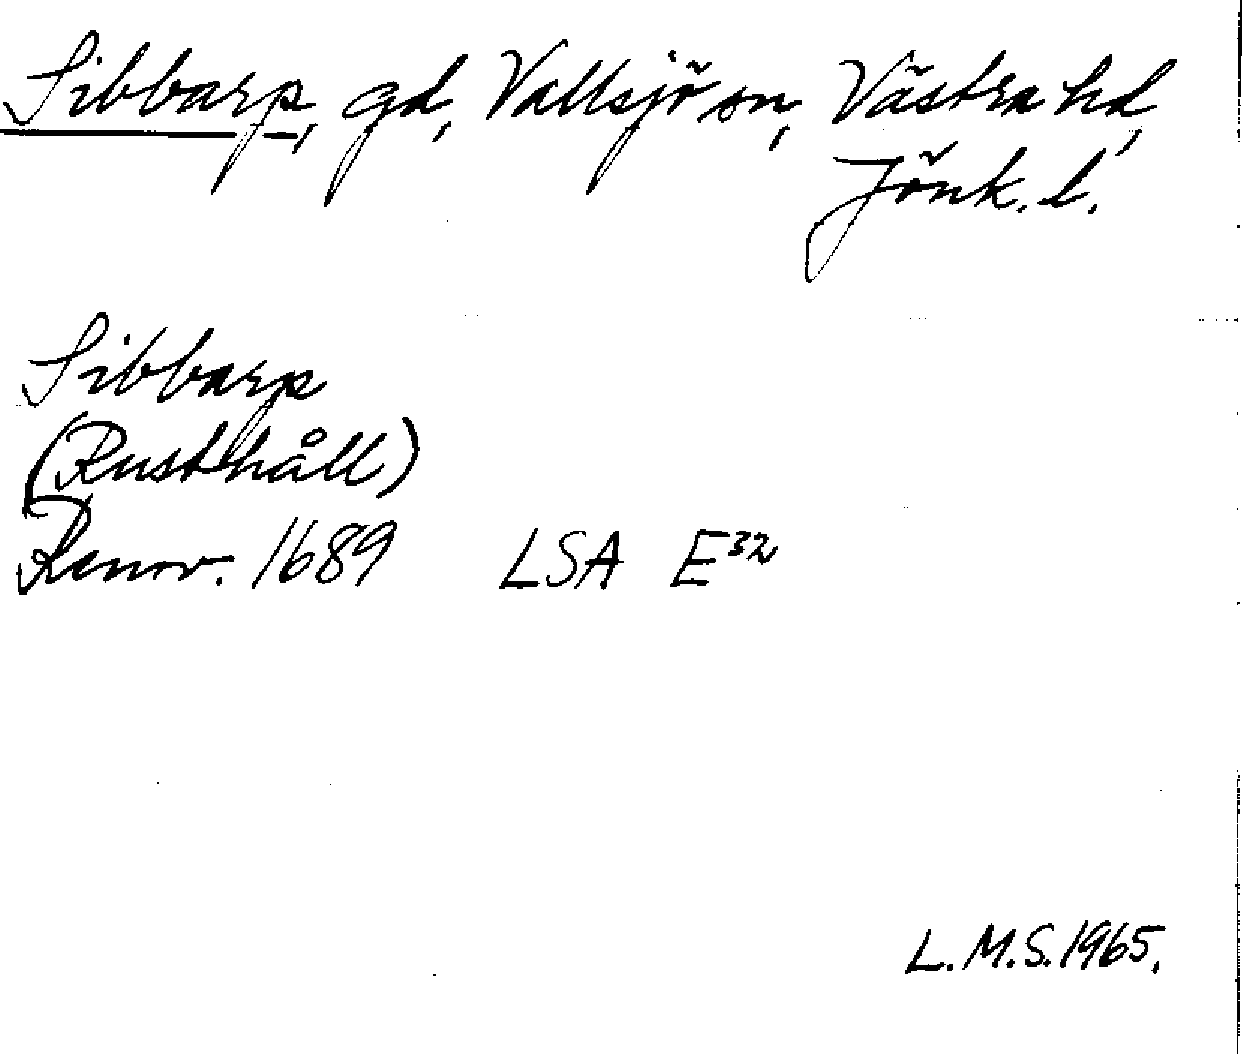 Sibbarp, gd, Vallsjö sn, Västra hd,
Jönk. l.
Sibbarp
(Rusthåll)
Renov. 1689 LSA E³²
L.M.S. 1965.